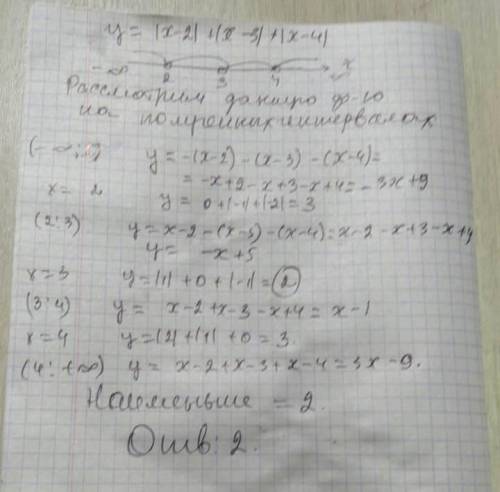 y = |x-2| + |x-3| + |x-4|
-∞ 2 3 4 x
Рассмотрим данную ф-ю
на полученных интервалах
(-∞; 2) y = -(x-2) - (x-3) - (x-4) =
= -x+2-x+3-x+4 = -3x+9
x = 2 y = 0+|-1|+|-2| = 3
(2;3) y = x-2-(x-3)-(x-4) = x-2-x+3-x+4
y = -x+5
x=3 y = |1| + 0 + |-1| = 2
(3;4) y = x-2+x-3-x+4 = x-1
x=4 y = |2|+|1| + 0 = 3.
(4; +∞) y = x-2+x-3+x-4 = 3x-9.
Наименьше = 2.
Отв: 2.